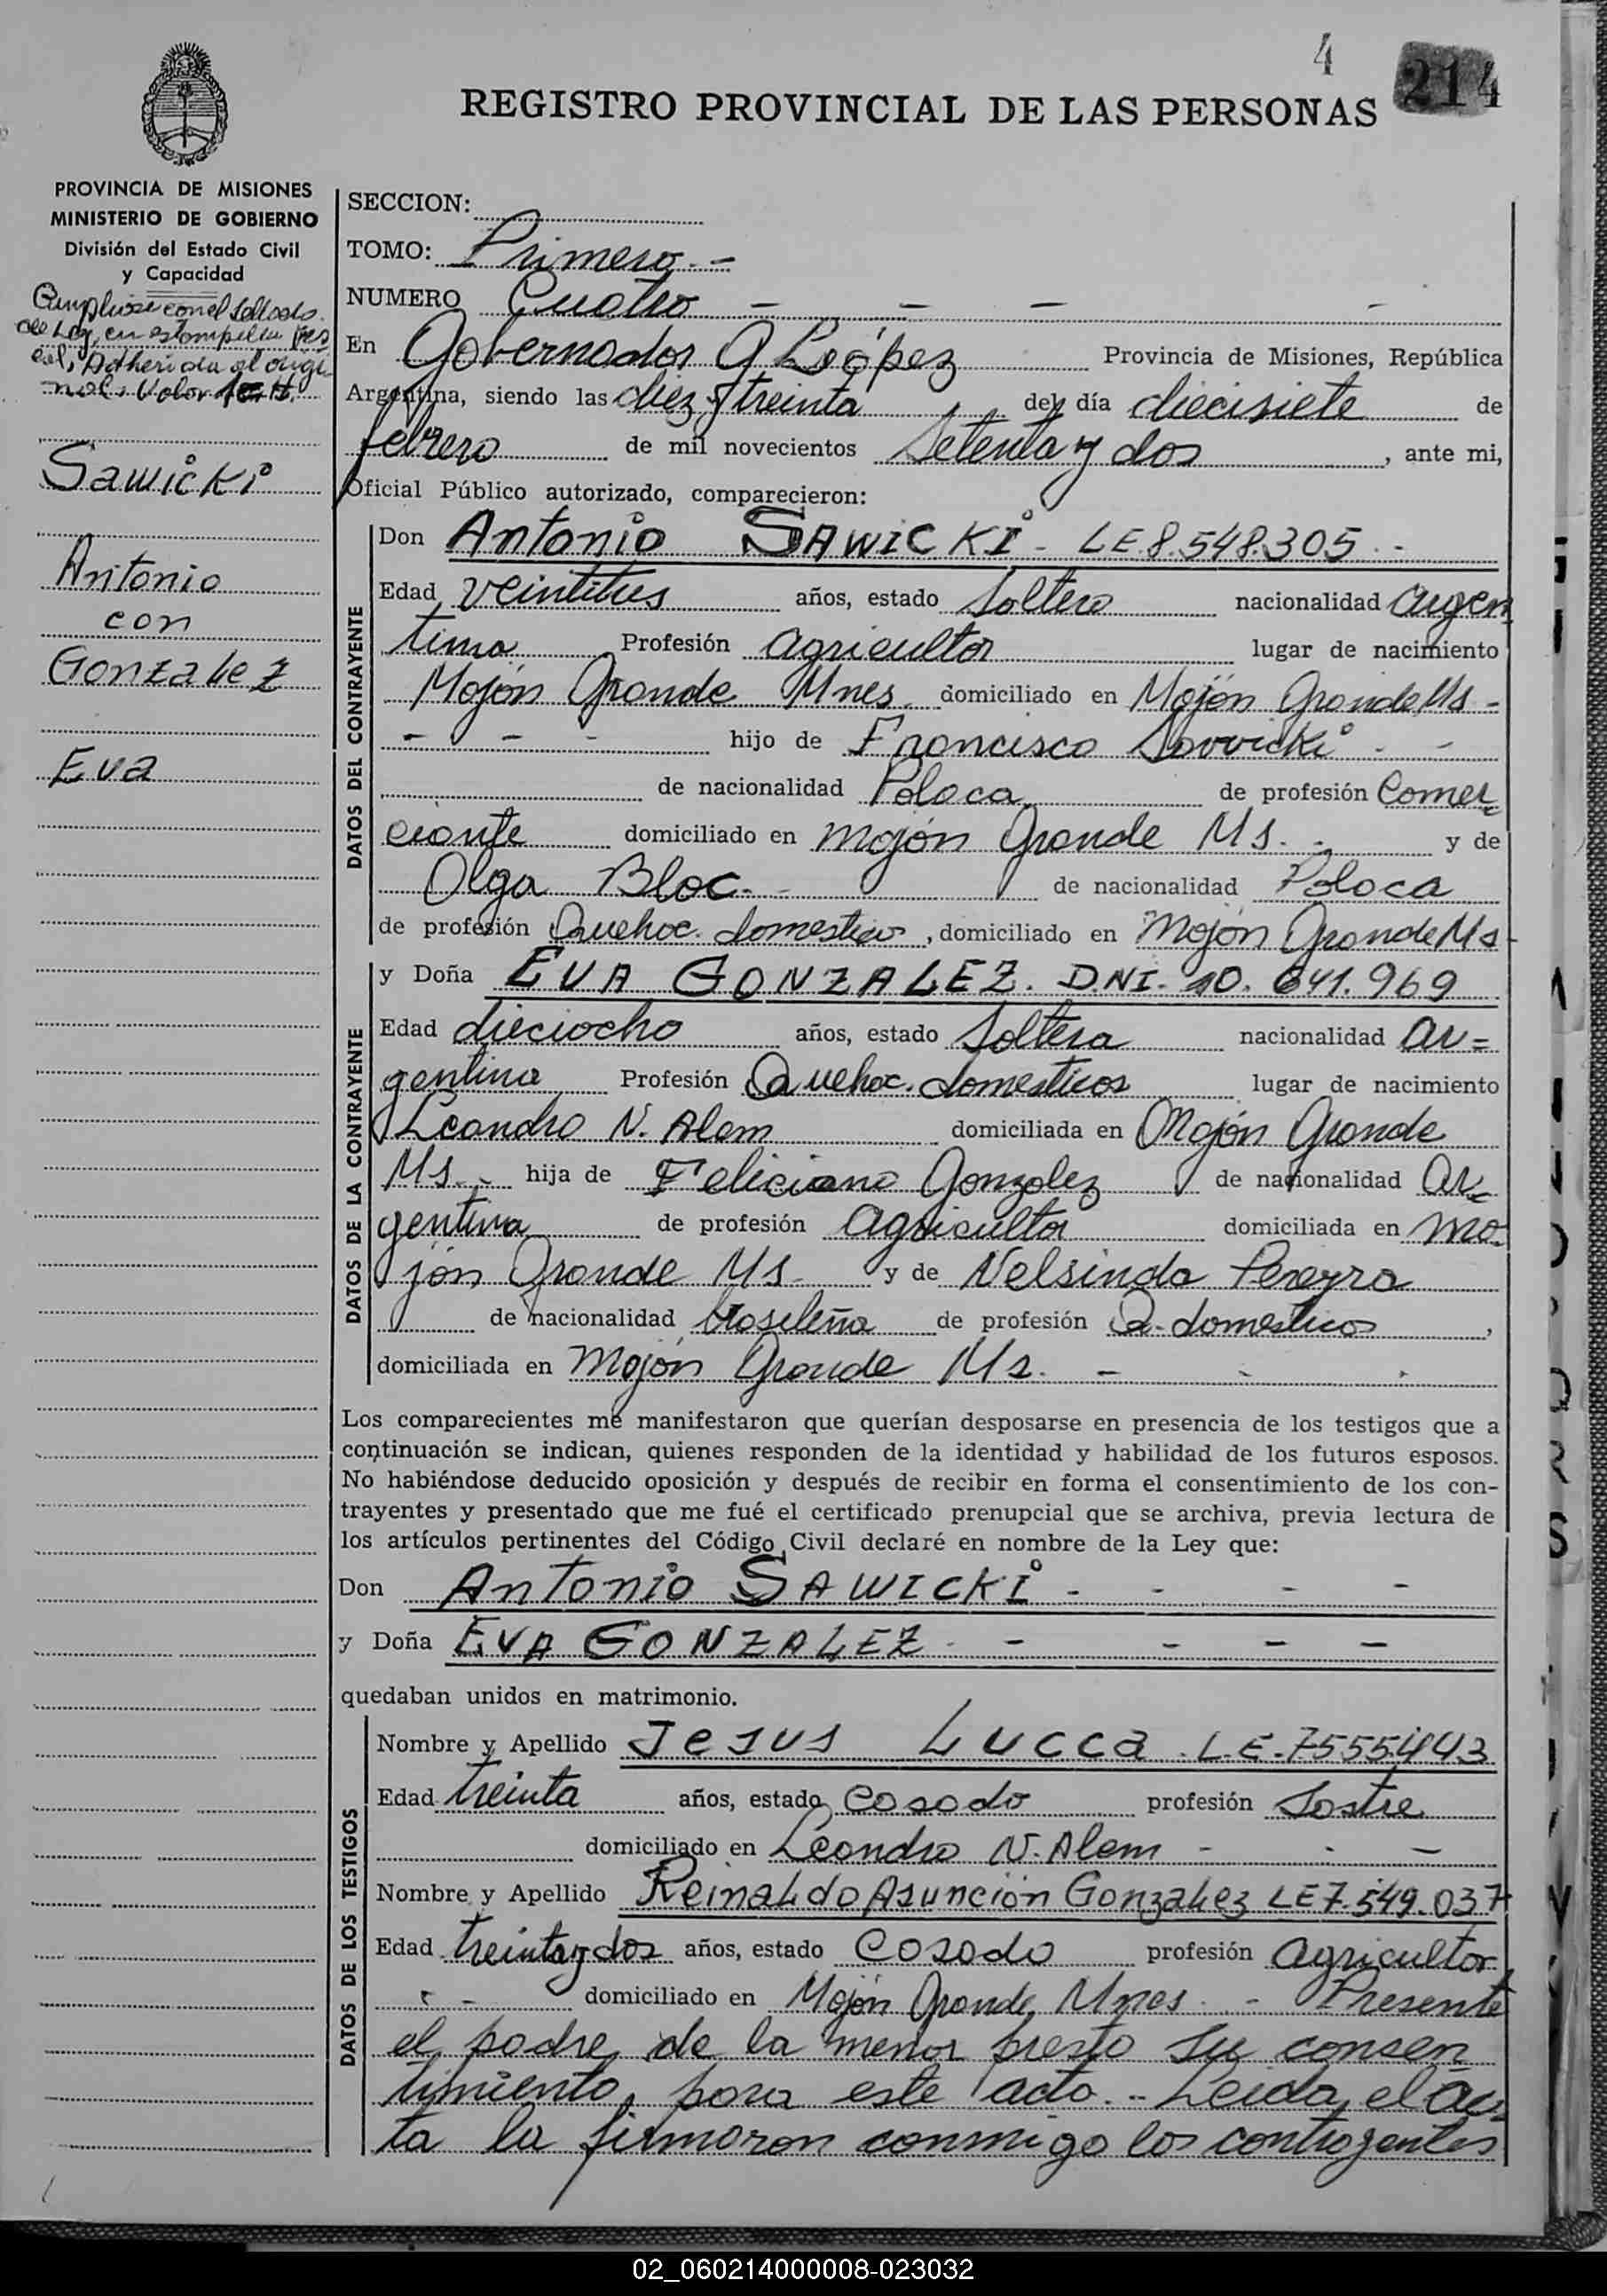 4 214
REGISTRO PROVINCIAL DE LAS PERSONAS
PROVINCIA DE MISIONES
MINISTERIO DE GOBIERNO
División del Estado Civil
y Capacidad
Cumplióse con el Sellado
de Ley, en estampilla fis
cal, Adherida al origi
nal. Valor
Sawicki
Antonio
con
Gonzalez
Eva
SECCION:
TOMO: Primero.-
NUMERO Cuatro - - - -
En Gobernador López Provincia de Misiones, República
Argentina, siendo las diez y treinta del día diecisiete de
febrero de mil novecientos Setenta y dos, ante mi,
Oficial Público autorizado, comparecieron:
DATOS DEL CONTRAYENTE
Don Antonio SAWICKI - LE.8.548.305.-
Edad veintitres años, estado Soltero nacionalidad argen
tina Profesión agricultor lugar de nacimiento
Mojón Grande Mnes. domiciliado en Mojón Grande Ms -
- - - hijo de Francisco Sawicki - -
de nacionalidad Polaca de profesión Comer
ciante domiciliado en Mojón Grande Ms. - y de
Olga Bloc. - de nacionalidad Polaca
de profesión Quehac. domestico, domiciliado en Mojón Grande Ms -
DATOS DE LA CONTRAYENTE
y Doña EVA GONZALEZ. D.NI. 10.641.969
Edad dieciocho años, estado Soltera nacionalidad ar=
gentina Profesión Quehac. domesticos lugar de nacimiento
Leandro N. Alem domiciliada en Mojón Grande
Ms.- hija de Feliciano Gonzalez de nacionalidad Ar-
gentina de profesión agricultor domiciliada en Mo-
jón Grande Ms. y de Nelsinda Pereyra
de nacionalidad brasileña de profesión Q. domestico,
domiciliada en Mojón Grande Ms. - - -
Los comparecientes me manifestaron que querían desposarse en presencia de los testigos que a
continuación se indican, quienes responden de la identidad y habilidad de los futuros esposos.
No habiéndose deducido oposición y después de recibir en forma el consentimiento de los con-
trayentes y presentado que me fué el certificado prenupcial que se archiva, previa lectura de
los artículos pertinentes del Código Civil declaré en nombre de la Ley que:
Don Antonio SAWICKI - - - -
y Doña EVA GONZALEZ - - - - -
quedaban unidos en matrimonio.
DATOS DE LOS TESTIGOS
Nombre y Apellido Jesus Lucca. L.E. 7555443
Edad treinta años, estado casado profesión Sastre
domiciliado en Leandro N. Alem - - -
Nombre y Apellido Reinaldo Asunción Gonzalez LE7.549.037
Edad treinta y dos años, estado Casado profesión agricultor
- - domiciliado en Mojón Grande, Mnes. - Presente
el padre de la menor prestó su consen
timiento, para este acto.- Leida el ac-
ta la firmaron conmigo los contrayentes
02_060214000008-023032